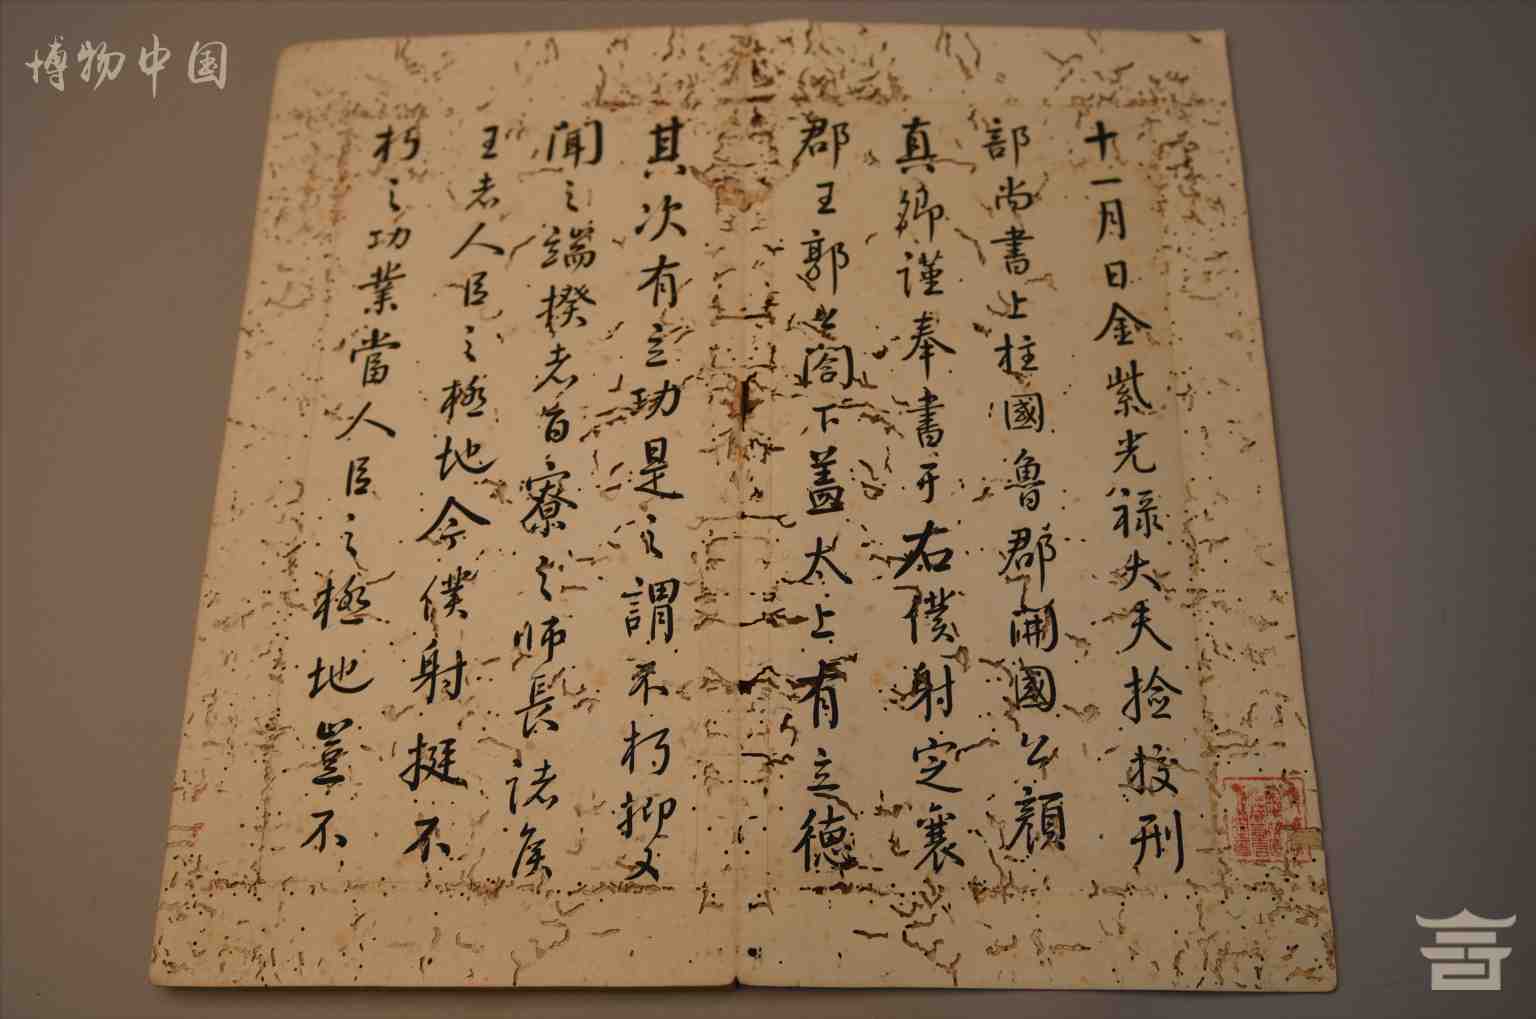 博物中国
十一月日金紫光禄大夫捡挍刑
部尚書上柱國魯郡開國公顔
真卿謹奉書于右僕射定襄
郡王郭公閤下蓋太上有立德
其次有立功是之謂不朽抑又
聞之端揆者百寮之師長諸侯
王者人臣之極地今僕射挺不
朽之功業當人臣之極地豈不